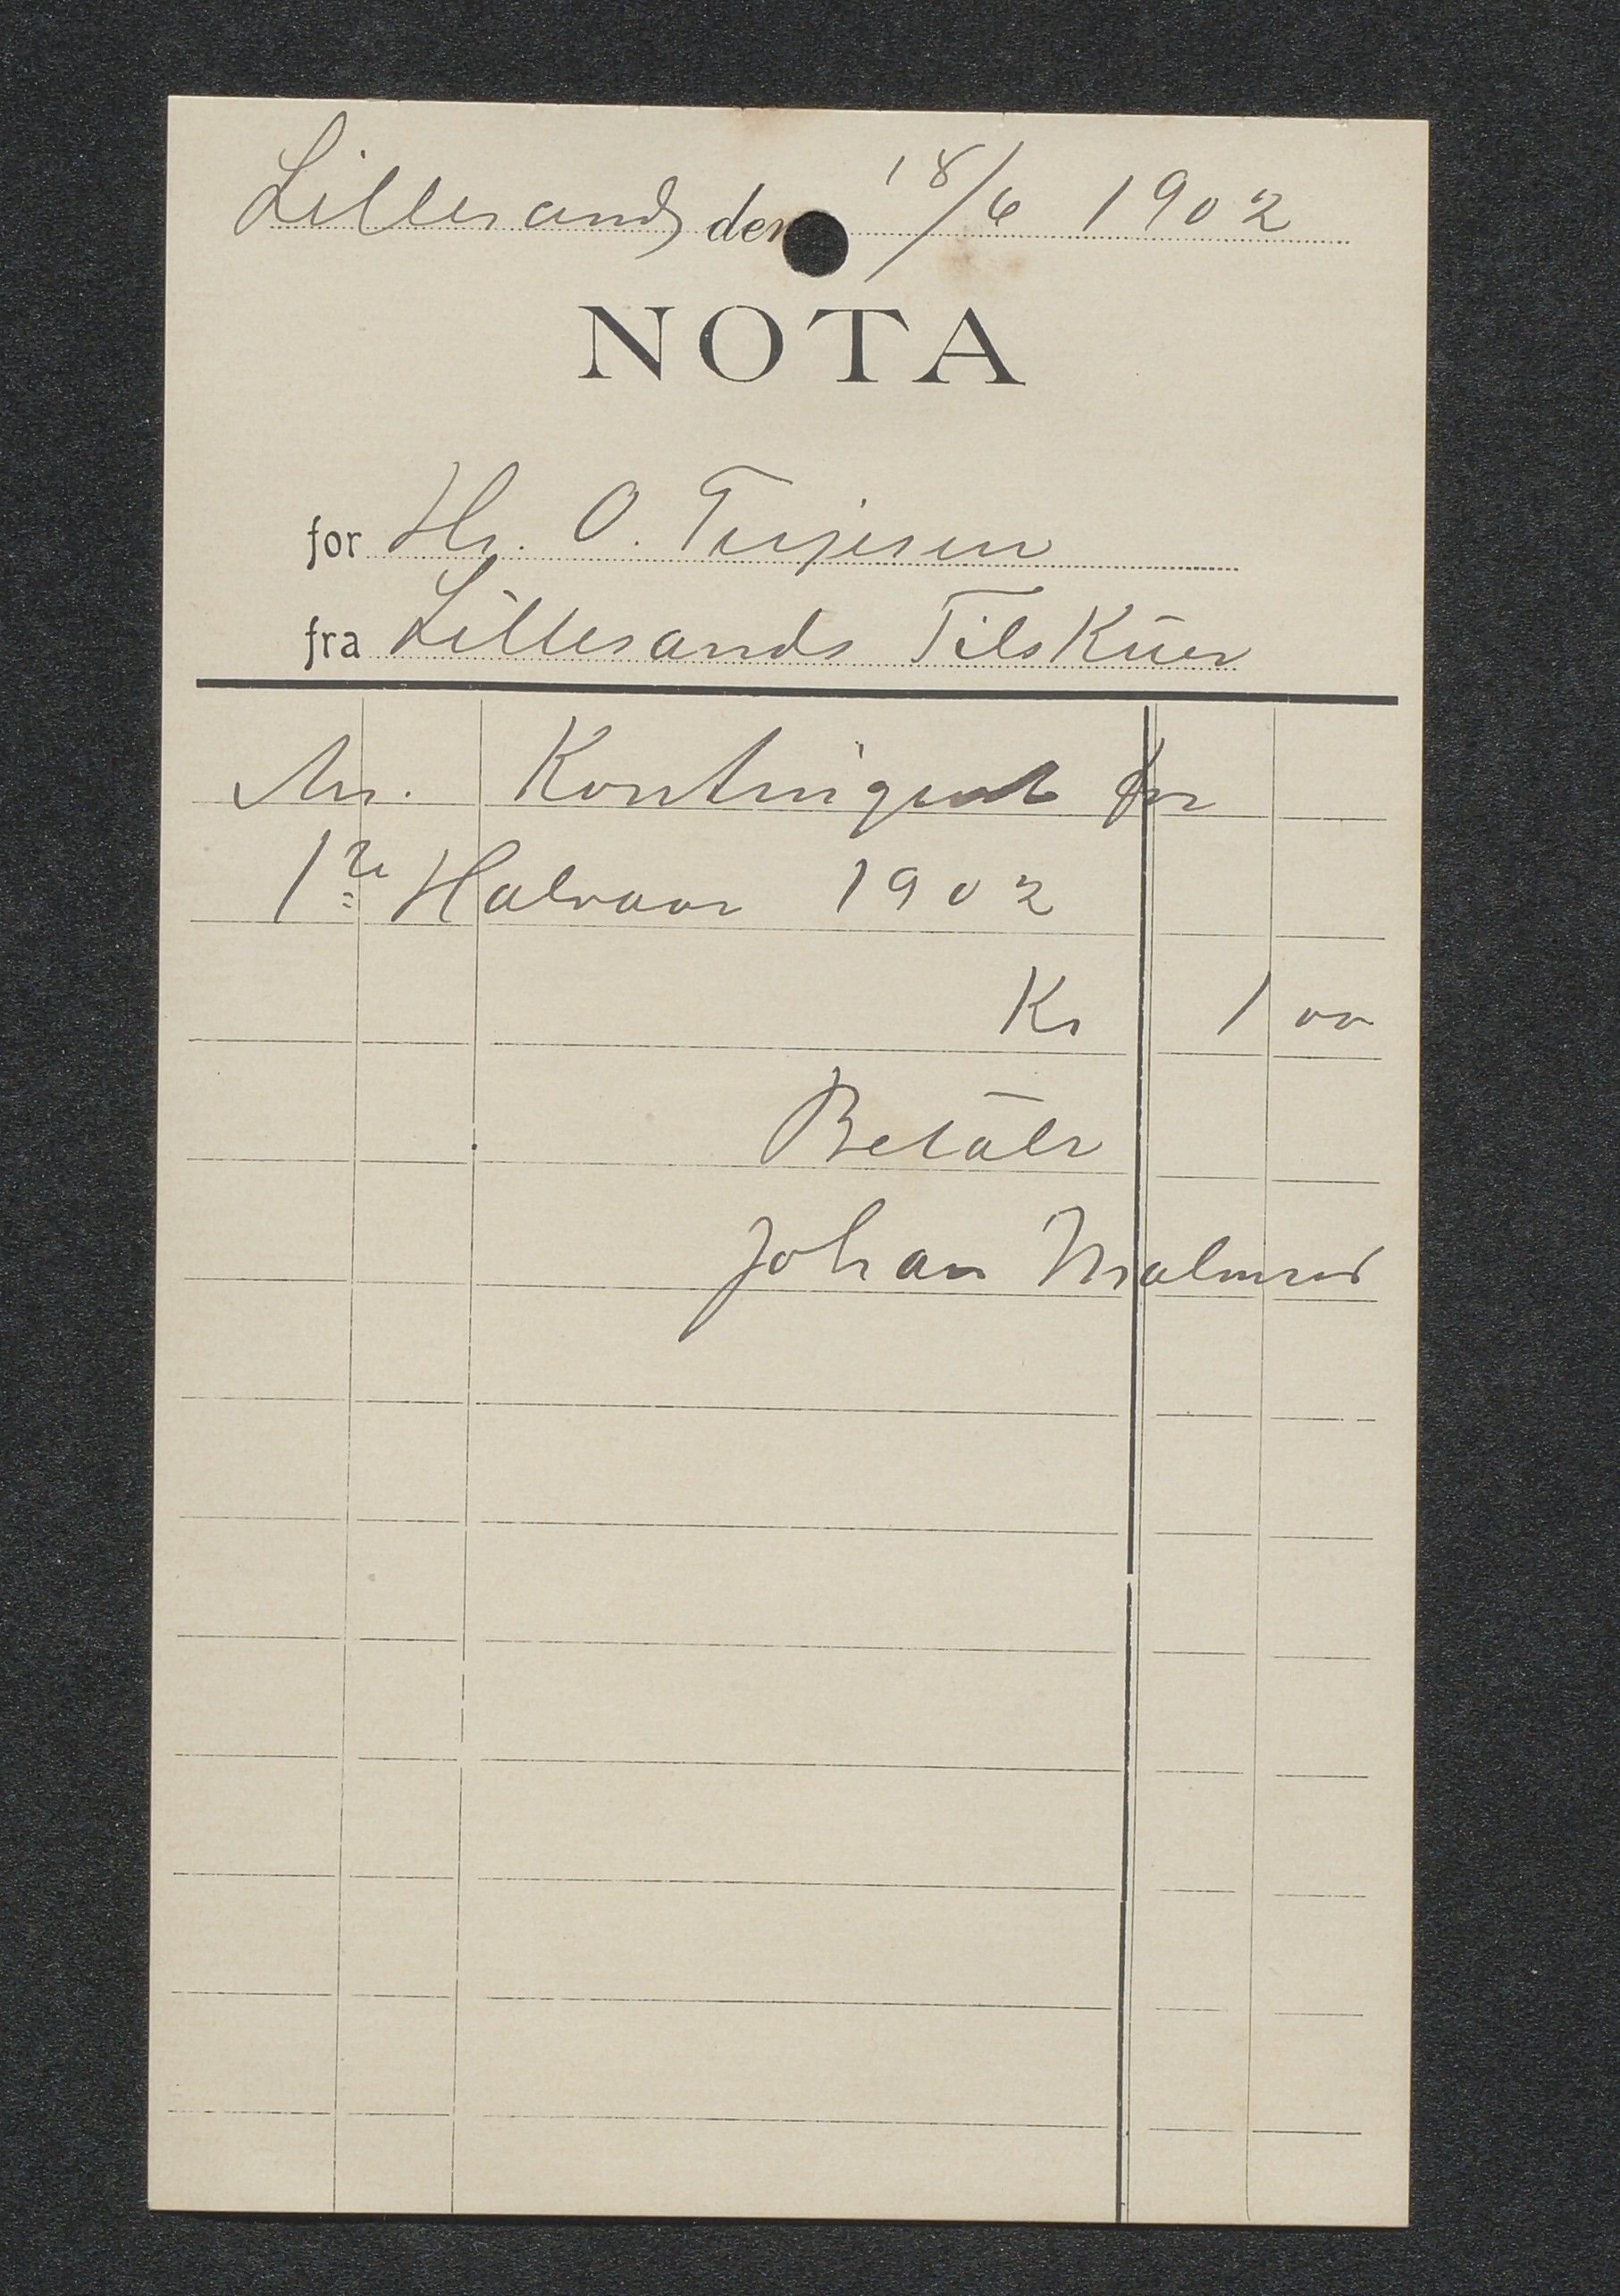 Lillesand den 18/6 1902
NOTA
for Hr. O. Terjesen
fra Lillesands Tilskuer
An. Kontingent for
1te Halvaar 1902
Kr 1 00
Betalt
Johan